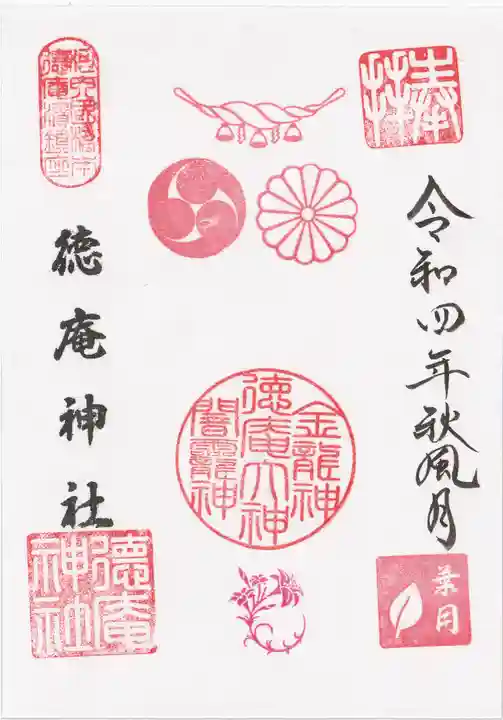 奉拝
令和四年秋風月
葉月
金龍神
徳庵大神
闇龗神
徳庵濱鎮座
徳庵神社
徳庵神社